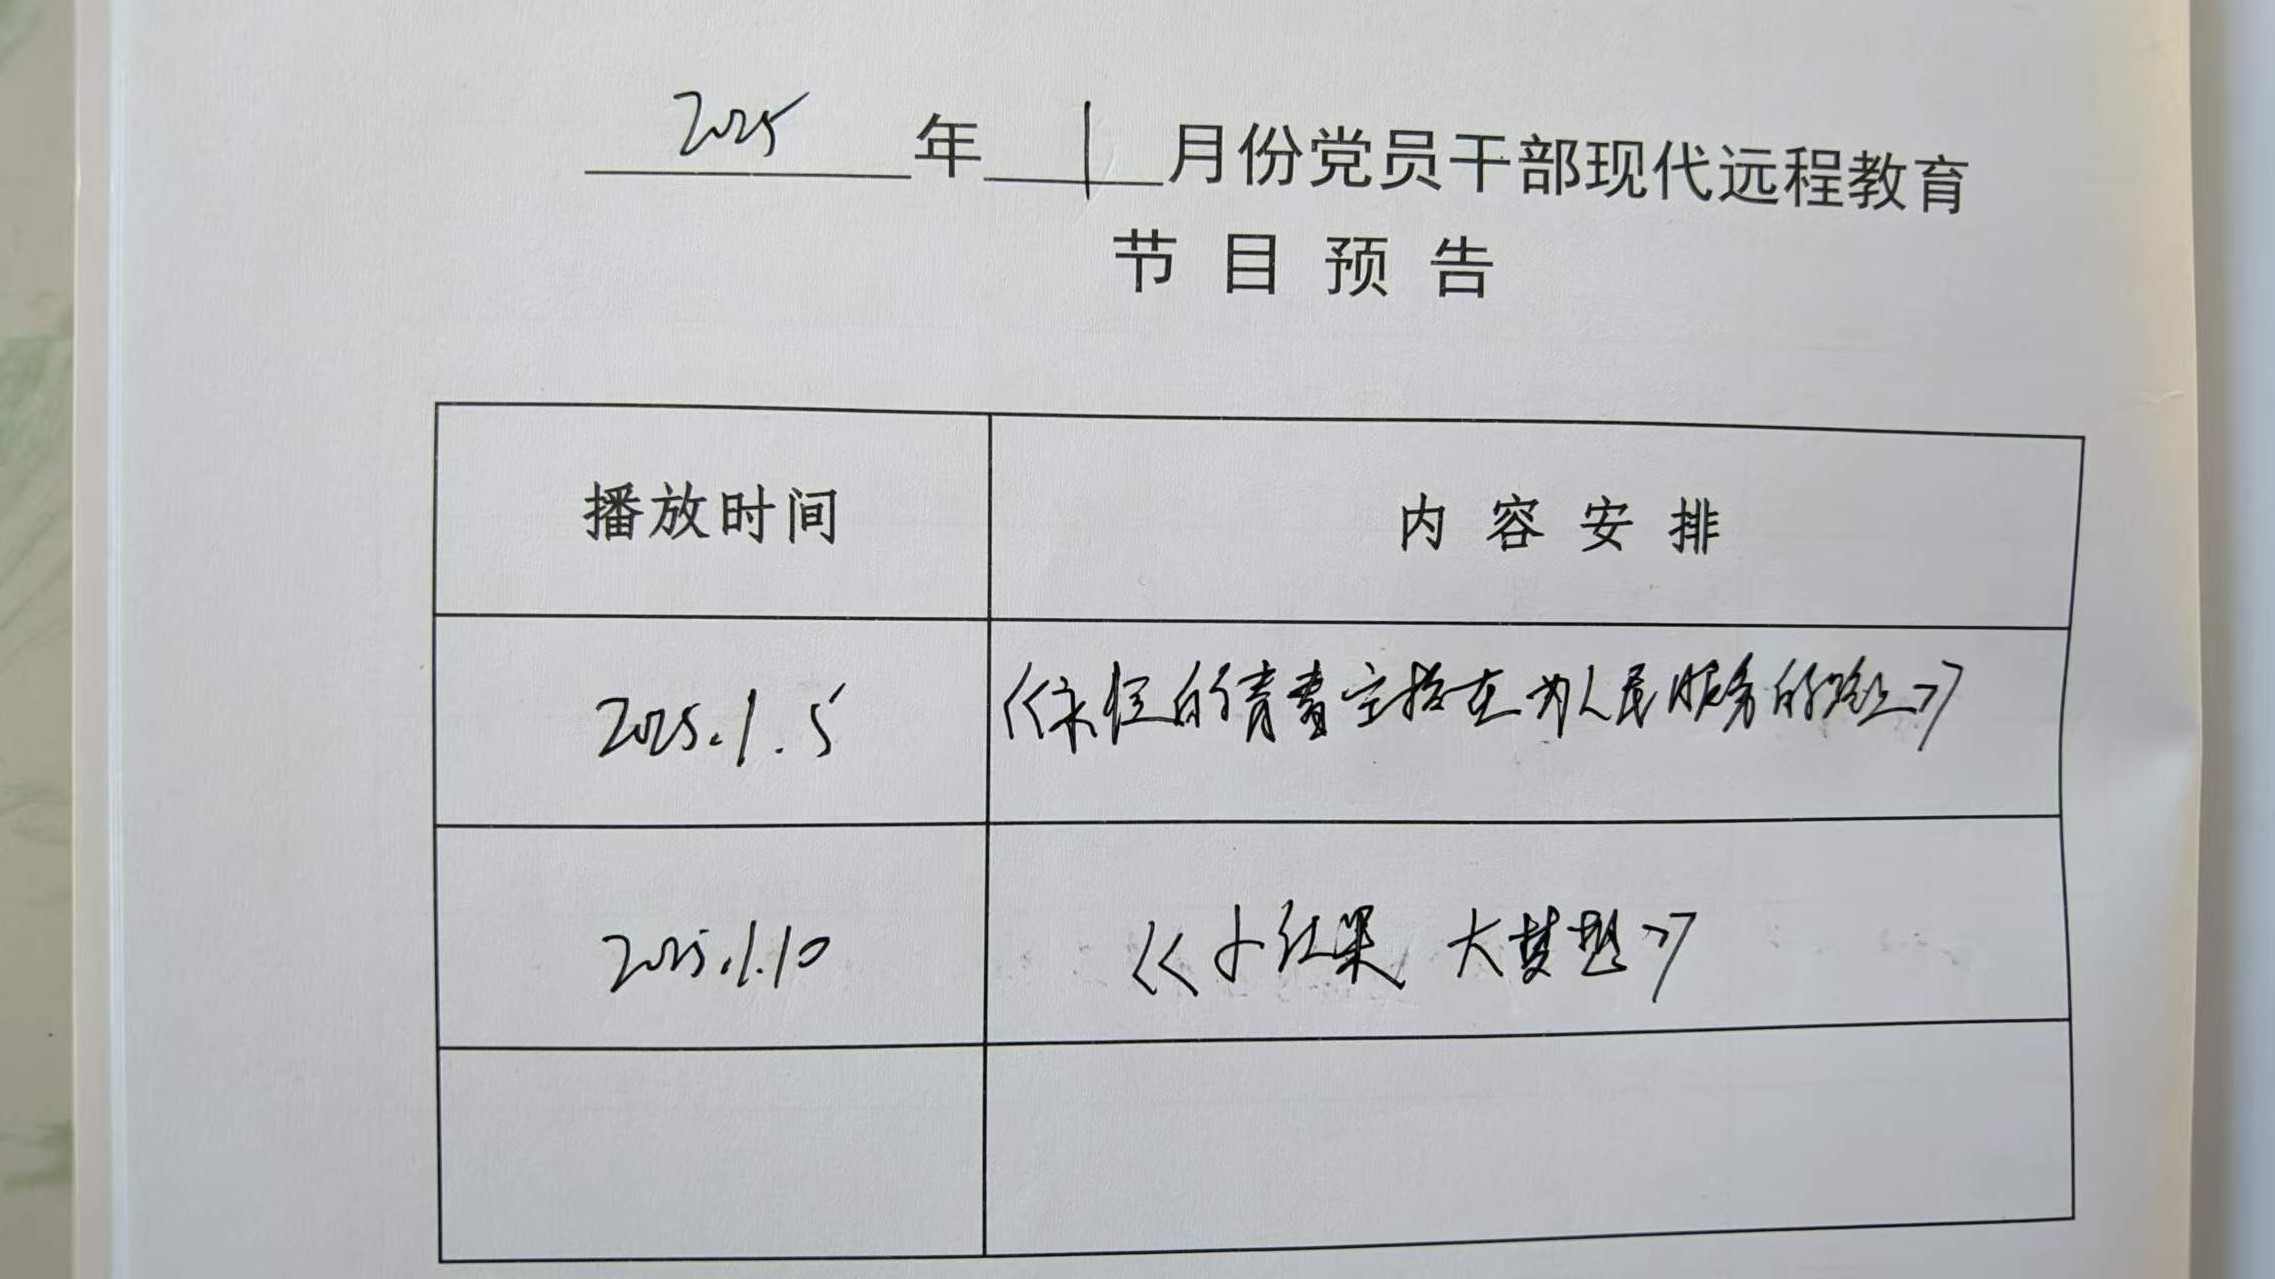 2025年1月份党员干部现代远程教育
节目预告
播放时间 内容安排
2025.1.5 《永恒的青春定格在为人民服务的路上》
2025.1.10 《小红果 大梦想》